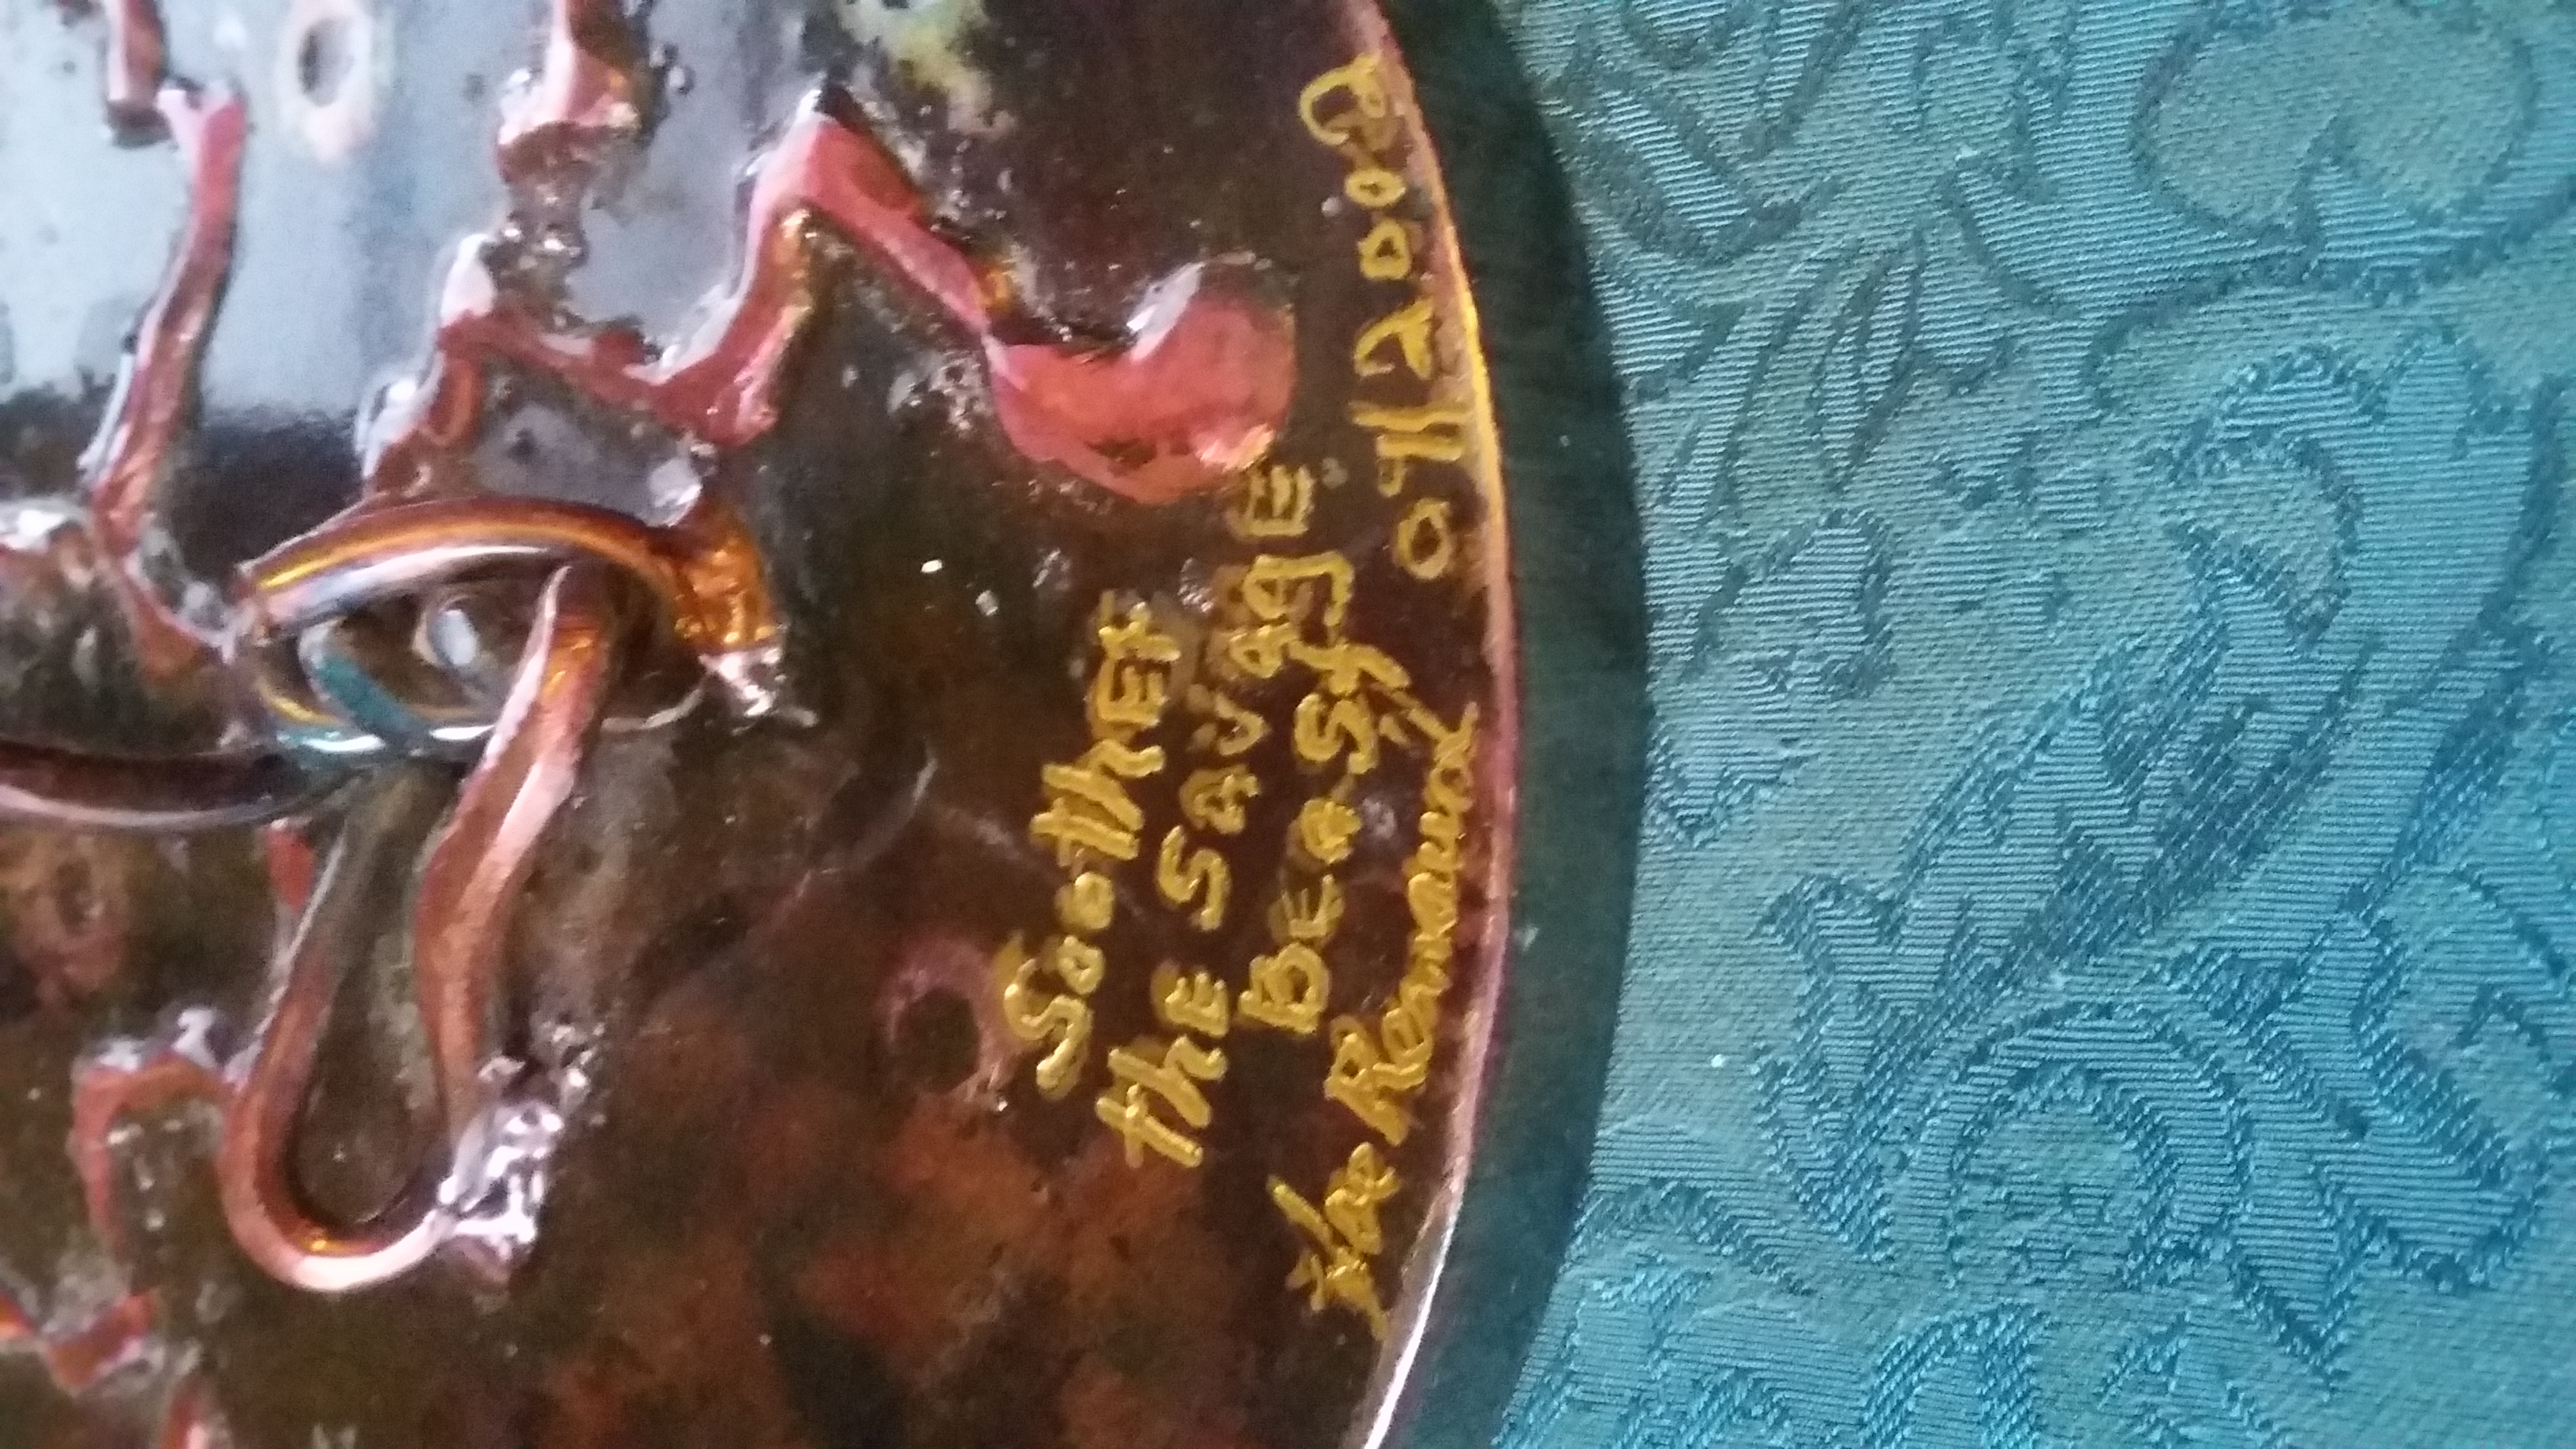 Soother
the Savage
Beast
Joe Remaund 09/2002